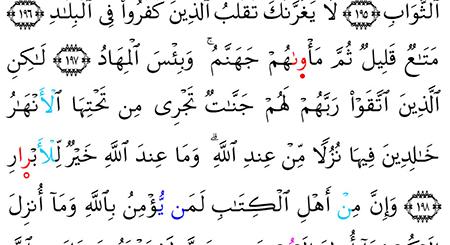 ٱلثَّوَابِ ١٩٥ لَا يَغُرَّنَّكَ تَقَلُّبُ ٱلَّذِينَ كَفَرُوا۟ فِى ٱلْبِلَـٰدِ ١٩٦
مَتَـٰعٌ قَلِيلٌ ثُمَّ مَأْوَىٰهُمْ جَهَنَّمُ ۚ وَبِئْسَ ٱلْمِهَادُ ١٩٧ لَـٰكِنِ
ٱلَّذِينَ ٱتَّقَوْا۟ رَبَّهُمْ لَهُمْ جَنَّـٰتٌ تَجْرِى مِن تَحْتِهَا ٱلْأَنْهَـٰرُ
خَـٰلِدِينَ فِيهَا نُزُلًا مِّنْ عِندِ ٱللَّهِ ۗ وَمَا عِندَ ٱللَّهِ خَيْرٌ لِّلْأَبْرَارِ
١٩٨ وَإِنَّ مِنْ أَهْلِ ٱلْكِتَـٰبِ لَمَن يُؤْمِنُ بِٱللَّهِ وَمَآ أُنزِلَ